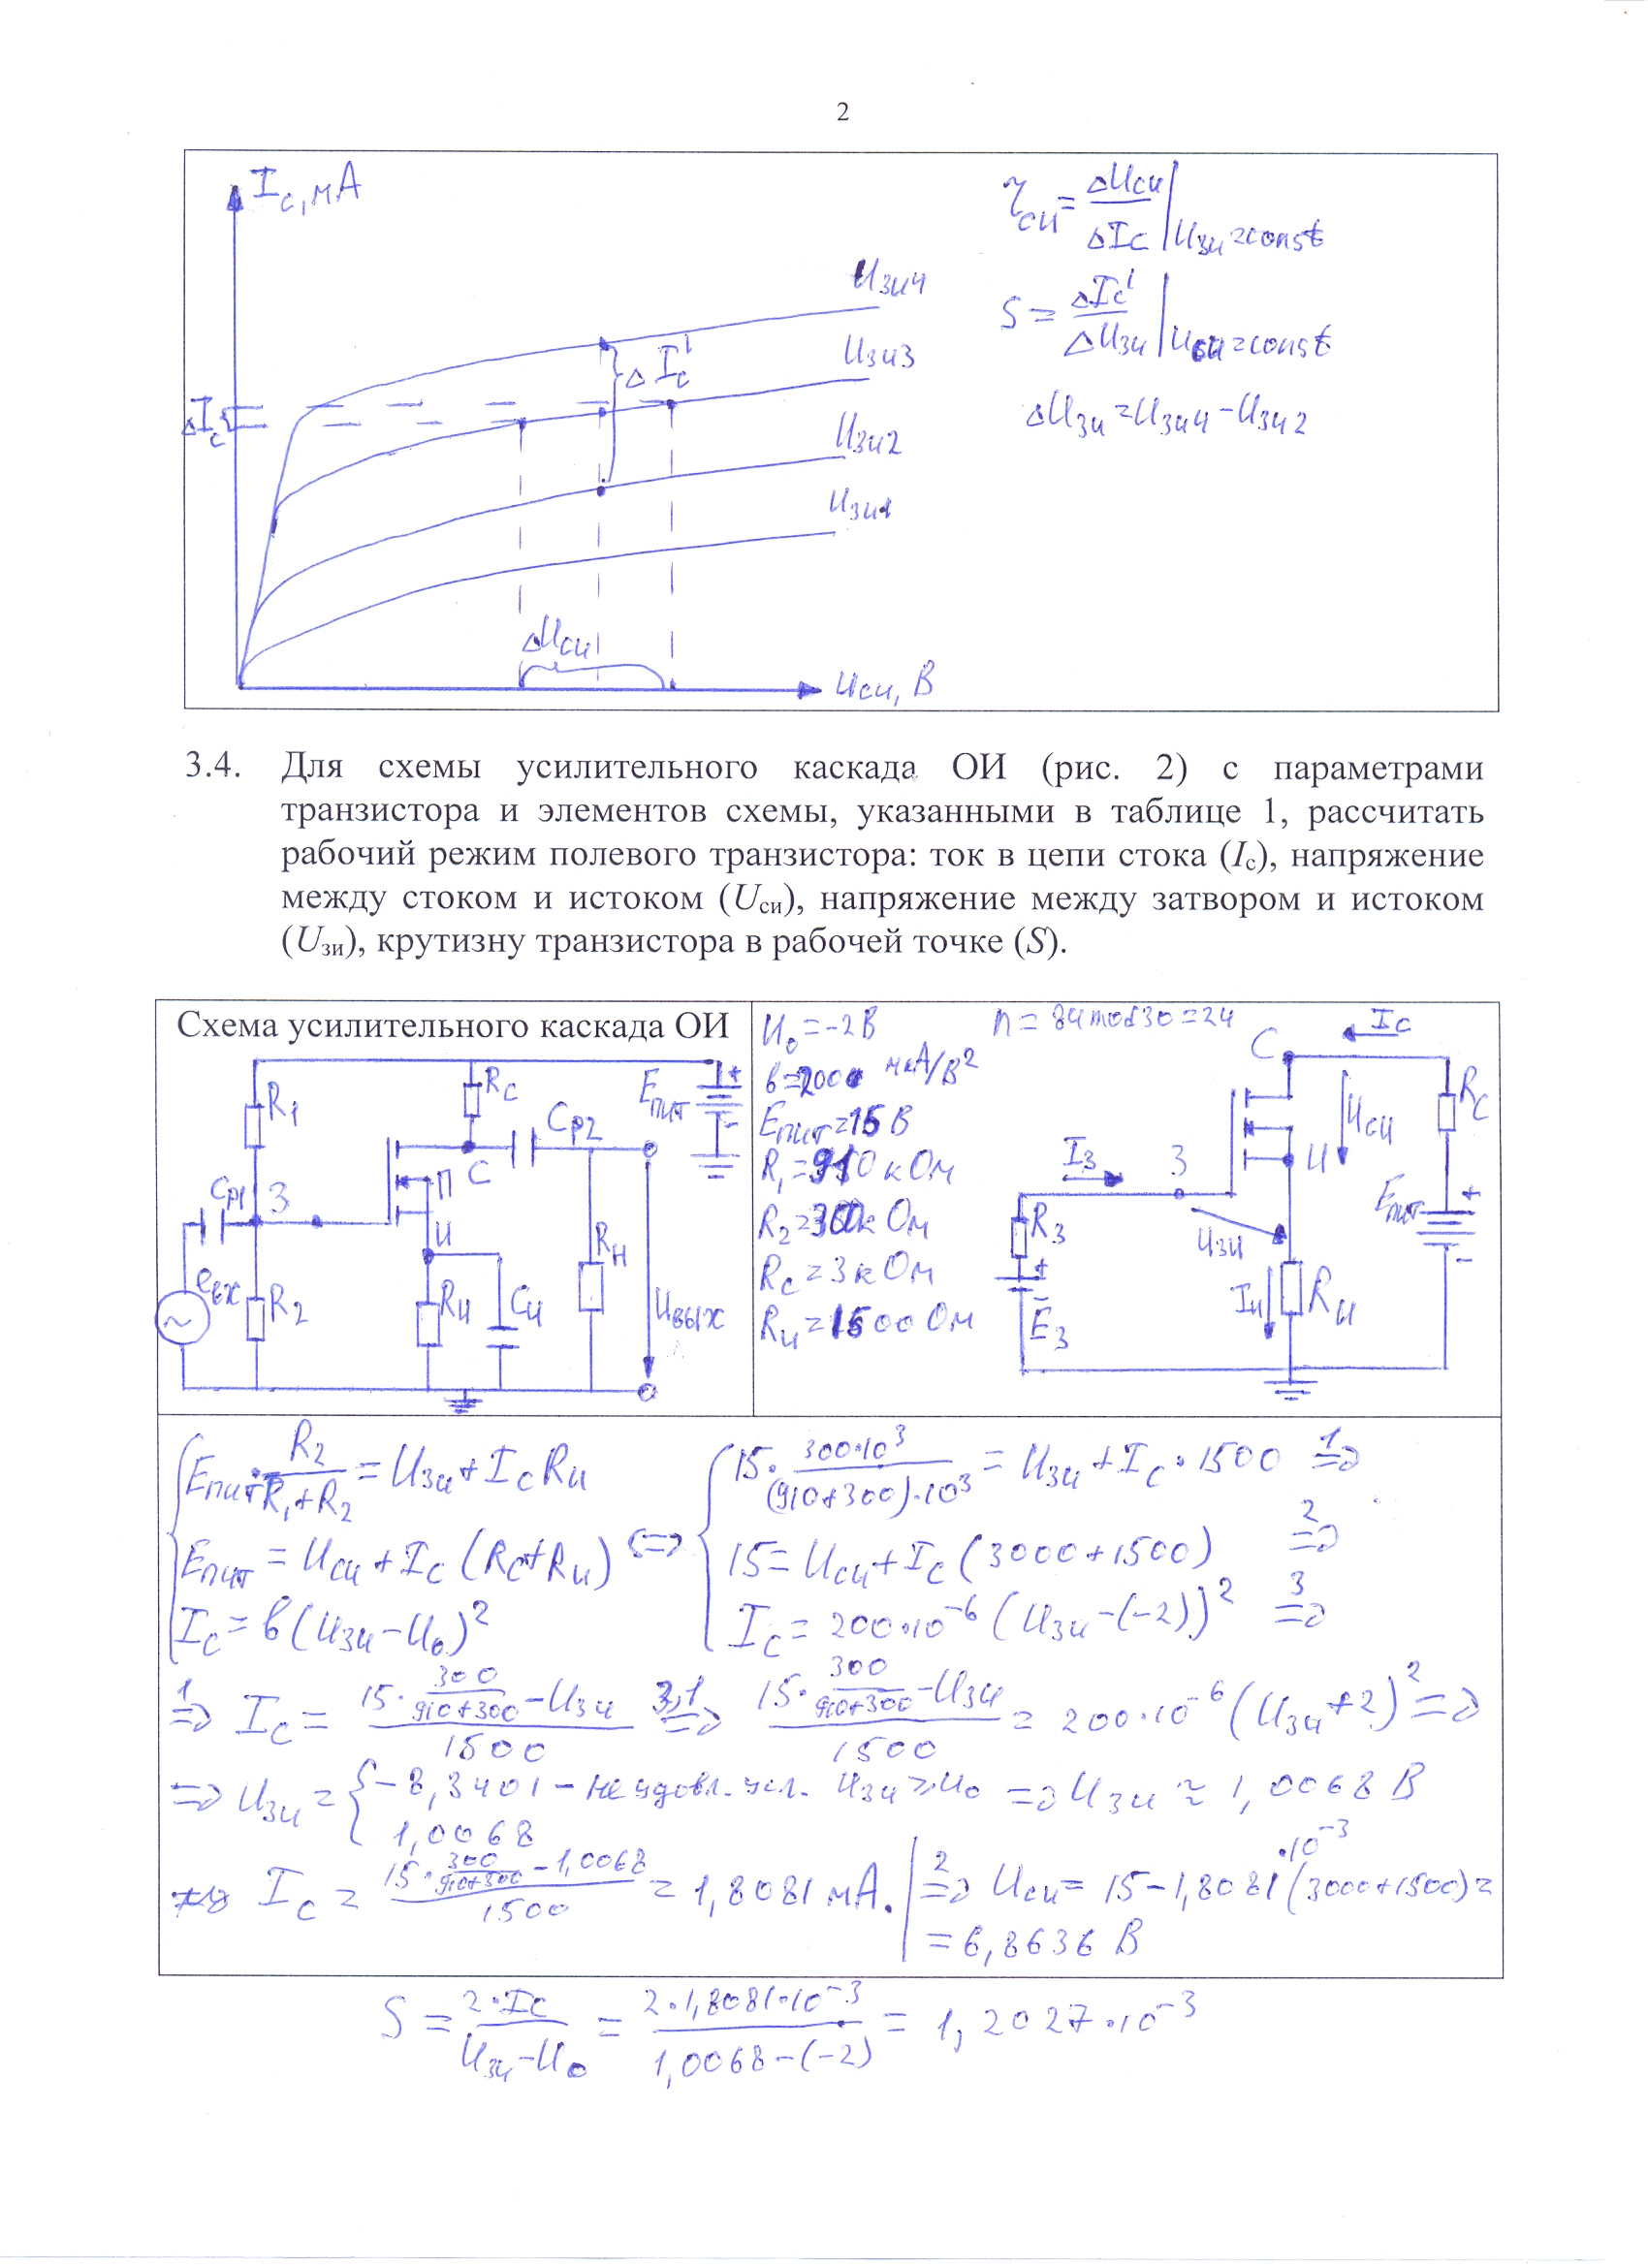 2
I_c, мA
r_си = ΔU_си / ΔI_c | U_зи = const
U_зи4
S = ΔI_c' / ΔU_зи | U_си = const
U_зи3
ΔI_c'
ΔI_c
ΔU_зи = U_зи4 - U_зи2
U_зи2
U_зи1
ΔU_си
U_си, В
3.4. Для схемы усилительного каскада ОИ (рис. 2) с параметрами
транзистора и элементов схемы, указанными в таблице 1, рассчитать
рабочий режим полевого транзистора: ток в цепи стока (I_с), напряжение
между стоком и истоком (U_си), напряжение между затвором и истоком
(U_зи), крутизну транзистора в рабочей точке (S).
Схема усилительного каскада ОИ
R_1
R_c
E_пит
+
-
C_р2
C_р1
З
П
С
И
e_вх
~
R_2
R_и
C_и
R_н
U_вых
U_0 = -2 В
b = 200 мкА/В²
E_пит = 15 В
R_1 = 910 кОм
R_2 = 300к Ом
R_c = 3 кОм
R_и = 1500 Ом
n = 84mod30 = 24
I_c
С
R_c
U_си
I_з
З
И
R_з
U_зи
E_пит
+
-
+
-
E_з
I_и
R_и
{ E_пит · R_2 / (R_1 + R_2) = U_зи + I_c R_и
E_пит = U_си + I_c (R_c + R_и)
I_c = b (U_зи - U_0)²
<=> { 15 · 300·10³ / (910+300)·10³ = U_зи + I_c · 1500 1=>
15 = U_си + I_c (3000 + 1500) 2=>
I_c = 200·10⁻⁶ (U_зи - (-2))² 3=>
1=> I_c = (15 · 300/(910+300) - U_зи) / 1500 3,1=> (15 · 300/(910+300) - U_зи) / 1500 = 200·10⁻⁶ (U_зи + 2)² =>
=> U_зи = { -8,3401 - не удовл. усл. U_зи > U_0 => U_зи ≈ 1,0068 В
1,0068
=> I_c = (15 · 300/(910+300) - 1,0068) / 1500 = 1,8081 мА. | 2=> U_си = 15 - 1,8081 ·10⁻³ (3000+1500) =
= 6,8636 В
S = 2·I_c / (U_зи - U_0) = 2·1,8081·10⁻³ / (1,0068 - (-2)) = 1,2027·10⁻³